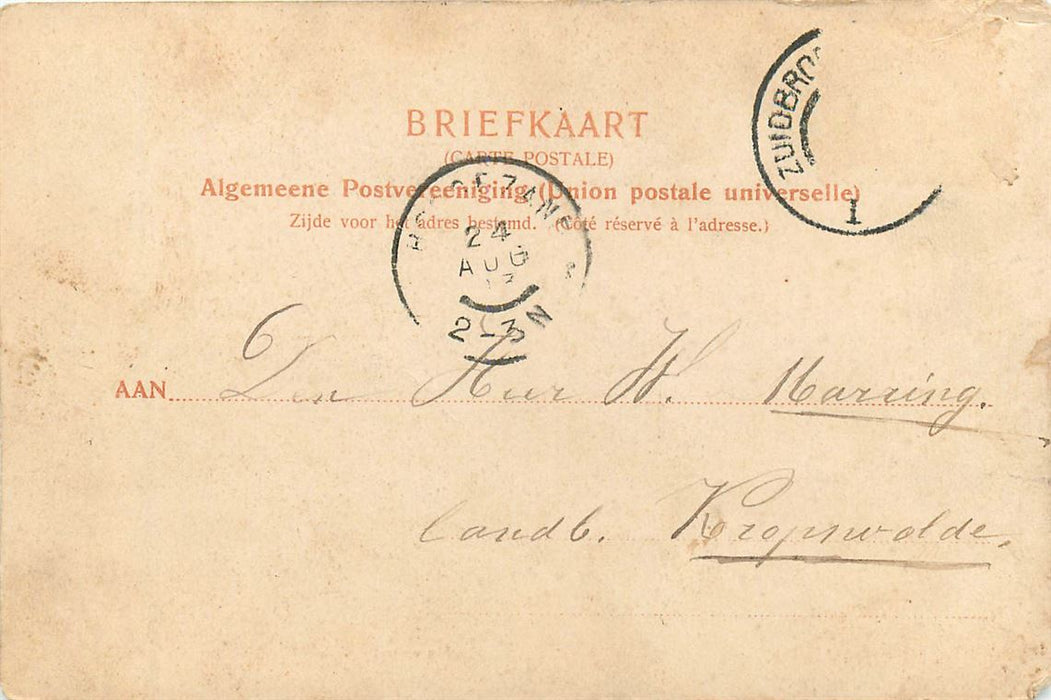 BRIEFKAART
(CARTE POSTALE)
Algemeene Postvereeniging (Union postale universelle)
Zijde voor het adres bestemd. (Côté réservé à l'adresse.)
ZUIDBROE
1
HOOGEZAND
24
AUG
2-3N
AAN Den Heer W. Harring.
landb. Kropswolde.